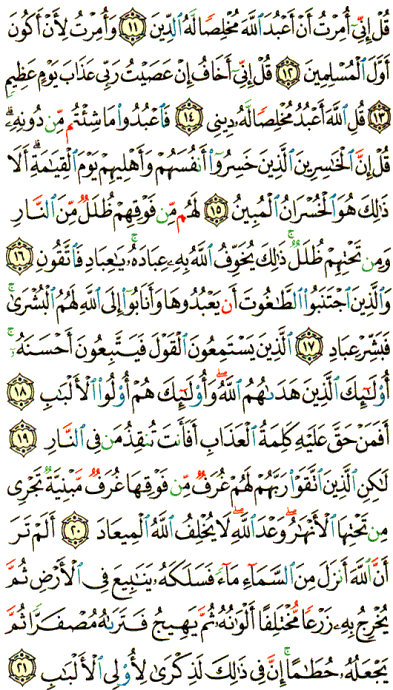 قُلْ إِنِّىٓ أُمِرْتُ أَنْ أَعْبُدَ ٱللَّهَ مُخْلِصًا لَّهُ ٱلدِّينَ ﴿١١﴾ وَأُمِرْتُ لِأَنْ أَكُونَ
أَوَّلَ ٱلْمُسْلِمِينَ ﴿١٢﴾ قُلْ إِنِّىٓ أَخَافُ إِنْ عَصَيْتُ رَبِّى عَذَابَ يَوْمٍ عَظِيمٍ
﴿١٣﴾ قُلِ ٱللَّهَ أَعْبُدُ مُخْلِصًا لَّهُۥ دِينِى ﴿١٤﴾ فَٱعْبُدُوا۟ مَا شِئْتُم مِّن دُونِهِۦ ۗ
قُلْ إِنَّ ٱلْخَٰسِرِينَ ٱلَّذِينَ خَسِرُوٓا۟ أَنفُسَهُمْ وَأَهْلِيهِمْ يَوْمَ ٱلْقِيَٰمَةِ ۗ أَلَا
ذَٰلِكَ هُوَ ٱلْخُسْرَانُ ٱلْمُبِينُ ﴿١٥﴾ لَهُم مِّن فَوْقِهِمْ ظُلَلٌ مِّنَ ٱلنَّارِ
وَمِن تَحْتِهِمْ ظُلَلٌ ۚ ذَٰلِكَ يُخَوِّفُ ٱللَّهُ بِهِۦ عِبَادَهُۥ ۚ يَٰعِبَادِ فَٱتَّقُونِ ﴿١٦﴾
وَٱلَّذِينَ ٱجْتَنَبُوا۟ ٱلطَّٰغُوتَ أَن يَعْبُدُوهَا وَأَنَابُوٓا۟ إِلَى ٱللَّهِ لَهُمُ ٱلْبُشْرَىٰ ۚ
فَبَشِّرْ عِبَادِ ﴿١٧﴾ ٱلَّذِينَ يَسْتَمِعُونَ ٱلْقَوْلَ فَيَتَّبِعُونَ أَحْسَنَهُۥٓ ۚ
أُو۟لَٰٓئِكَ ٱلَّذِينَ هَدَىٰهُمُ ٱللَّهُ ۖ وَأُو۟لَٰٓئِكَ هُمْ أُو۟لُوا۟ ٱلْأَلْبَٰبِ ﴿١٨﴾
أَفَمَنْ حَقَّ عَلَيْهِ كَلِمَةُ ٱلْعَذَابِ أَفَأَنتَ تُنقِذُ مَن فِى ٱلنَّارِ ﴿١٩﴾
لَٰكِنِ ٱلَّذِينَ ٱتَّقَوْا۟ رَبَّهُمْ لَهُمْ غُرَفٌ مِّن فَوْقِهَا غُرَفٌ مَّبْنِيَّةٌ تَجْرِى
مِن تَحْتِهَا ٱلْأَنْهَٰرُ ۖ وَعْدَ ٱللَّهِ ۖ لَا يُخْلِفُ ٱللَّهُ ٱلْمِيعَادَ ﴿٢٠﴾ أَلَمْ تَرَ
أَنَّ ٱللَّهَ أَنزَلَ مِنَ ٱلسَّمَآءِ مَآءً فَسَلَكَهُۥ يَنَٰبِيعَ فِى ٱلْأَرْضِ ثُمَّ
يُخْرِجُ بِهِۦ زَرْعًا مُّخْتَلِفًا أَلْوَٰنُهُۥ ثُمَّ يَهِيجُ فَتَرَىٰهُ مُصْفَرًّا ثُمَّ
يَجْعَلُهُۥ حُطَٰمًا ۚ إِنَّ فِى ذَٰلِكَ لَذِكْرَىٰ لِأُو۟لِى ٱلْأَلْبَٰبِ ﴿٢١﴾